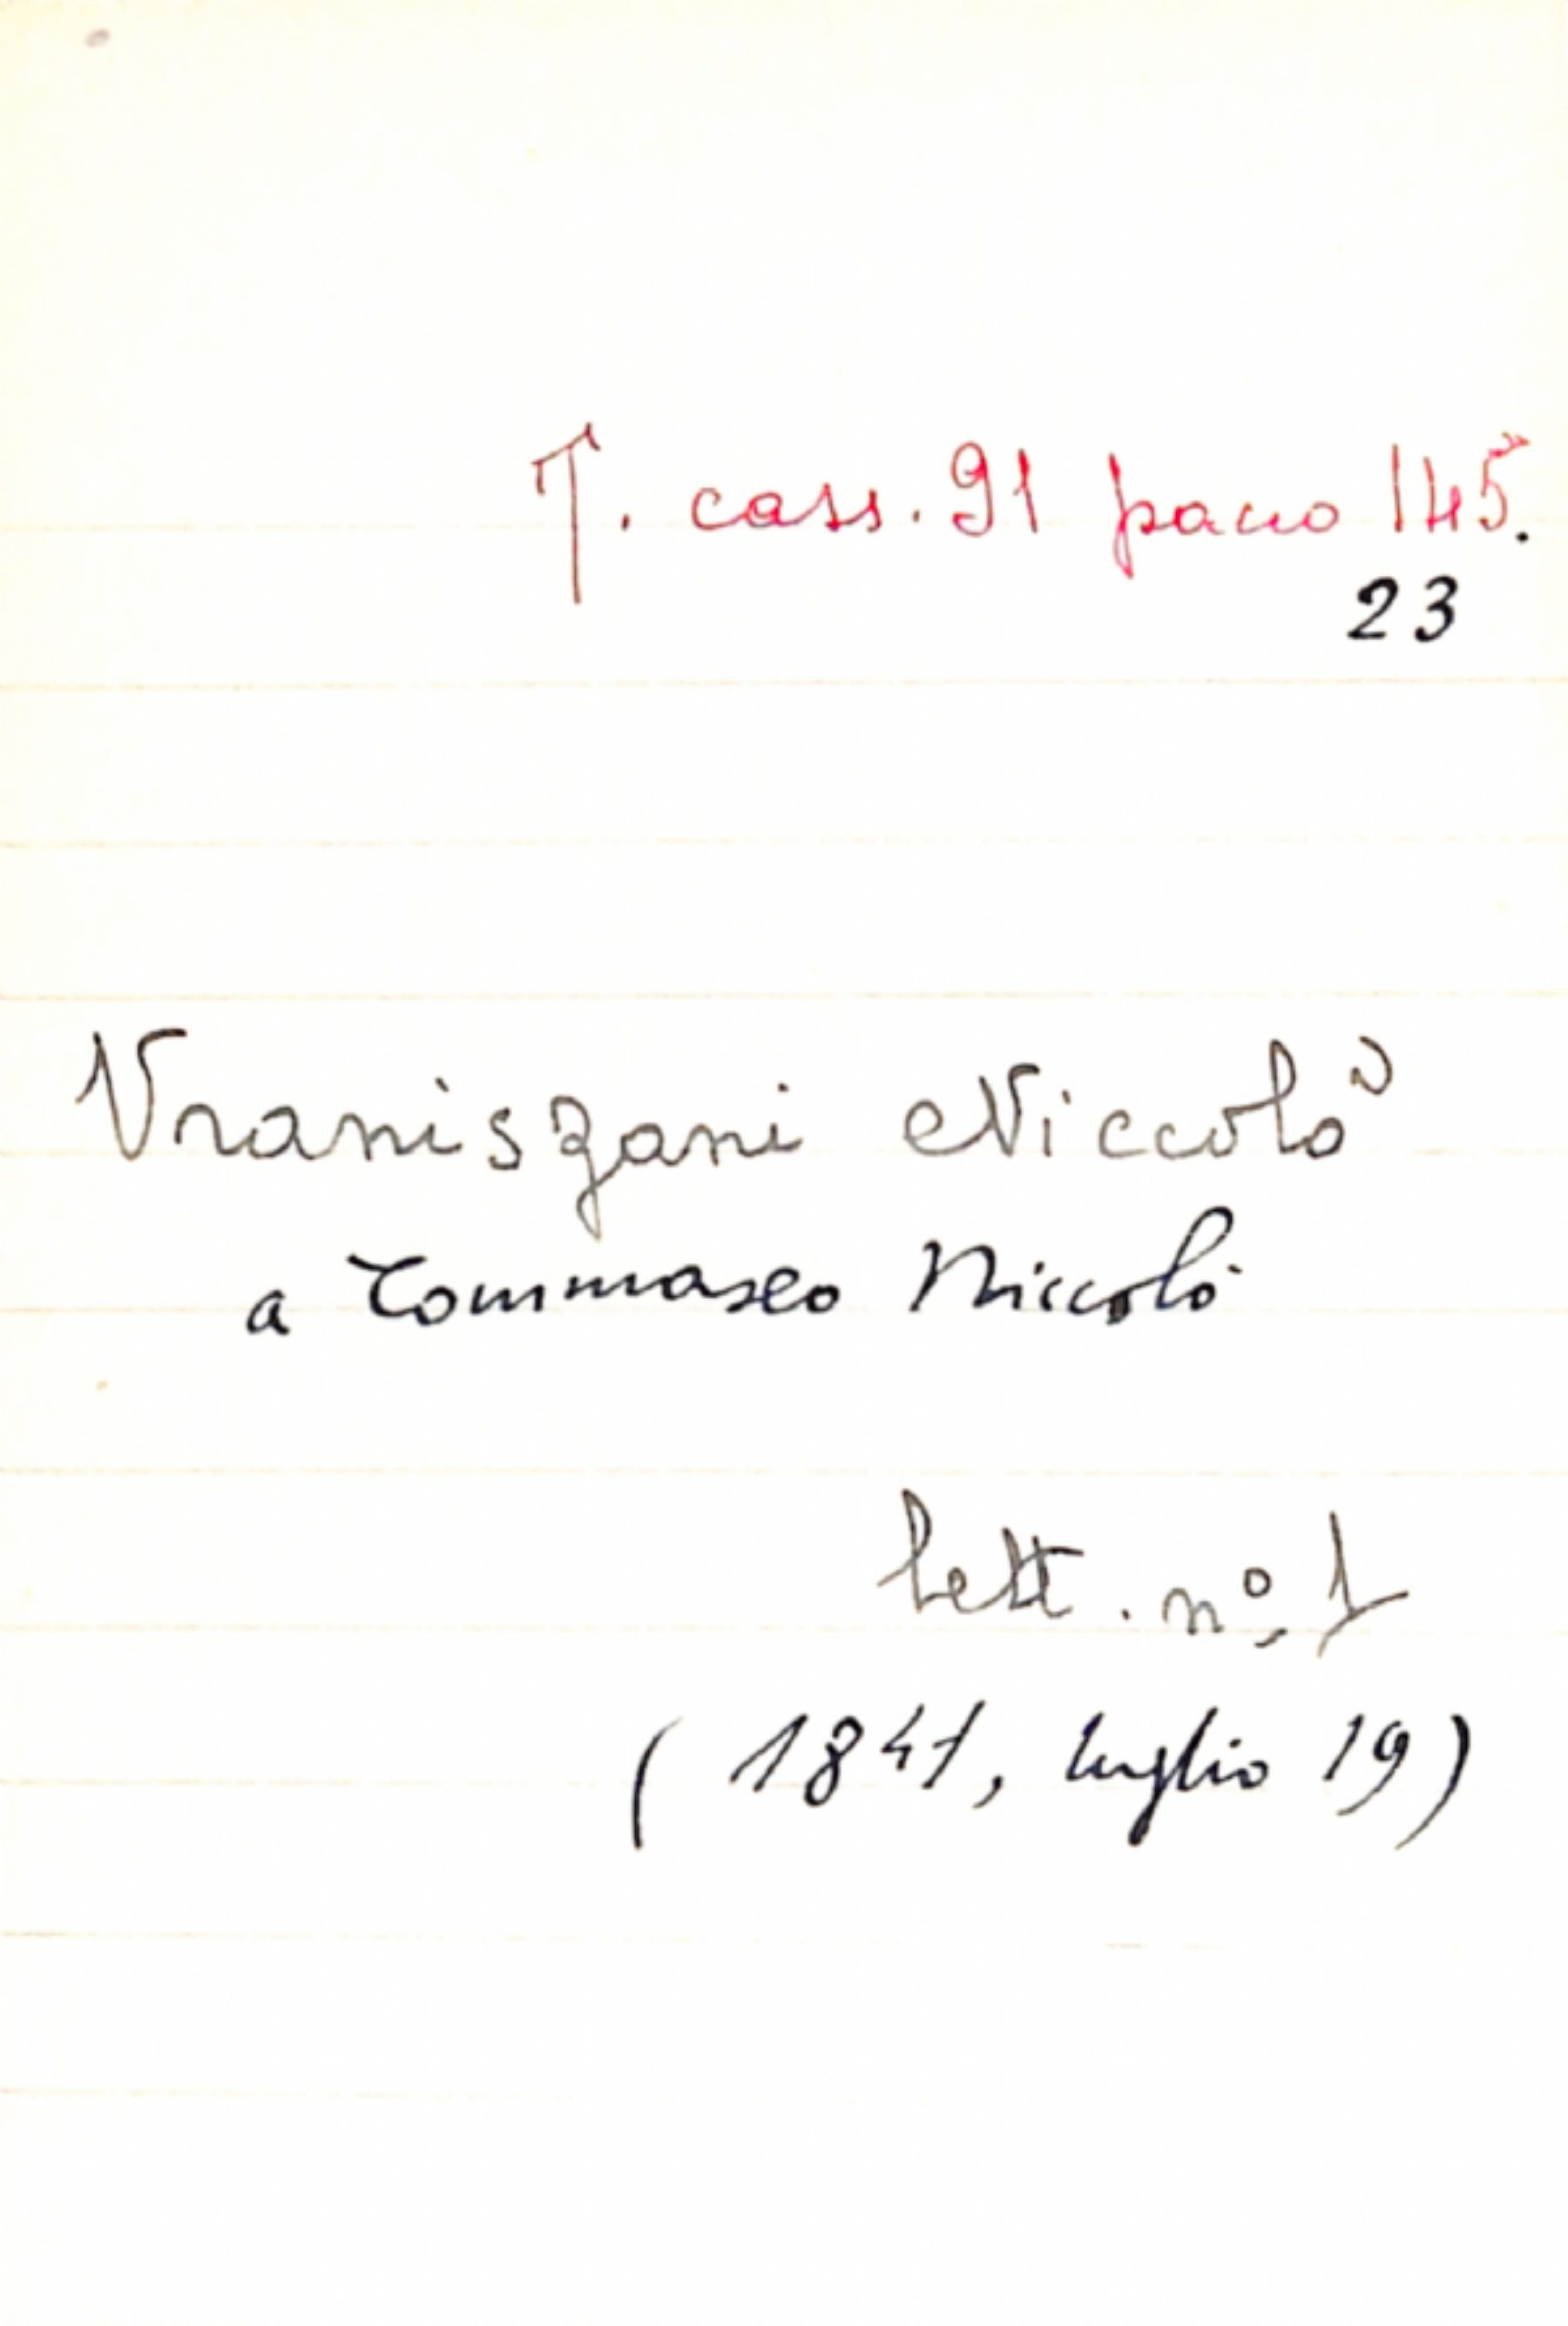 T. cass. 91 pacco 145.
23
Vraniszani Niccolò
a Tommaseo Niccolò
lett. nº. 1
(1841, luglio 19)